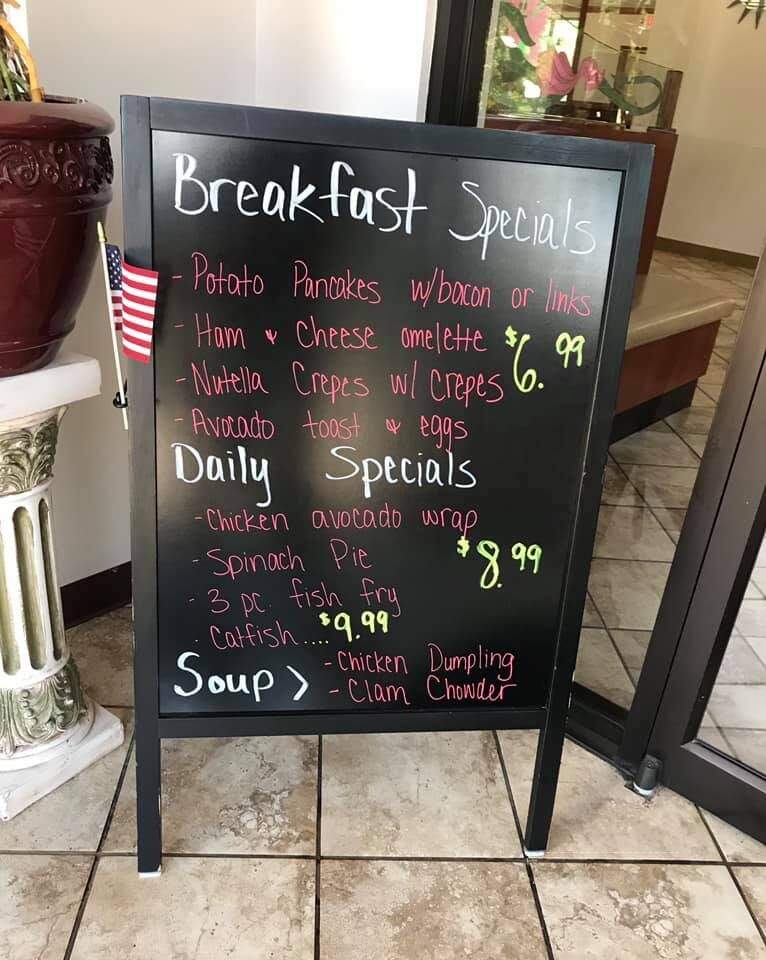 Breakfast Specials
- Potato Pancakes w/bacon or links
- Ham & Cheese omelette $6.99
- Nutella Crepes w/ Crepes
- Avocado toast & eggs
Daily Specials
- Chicken avocado wrap
- Spinach Pie $8.99
- 3 pc. fish fry
- Catfish....$9.99
Soup > - Chicken Dumpling
- Clam Chowder